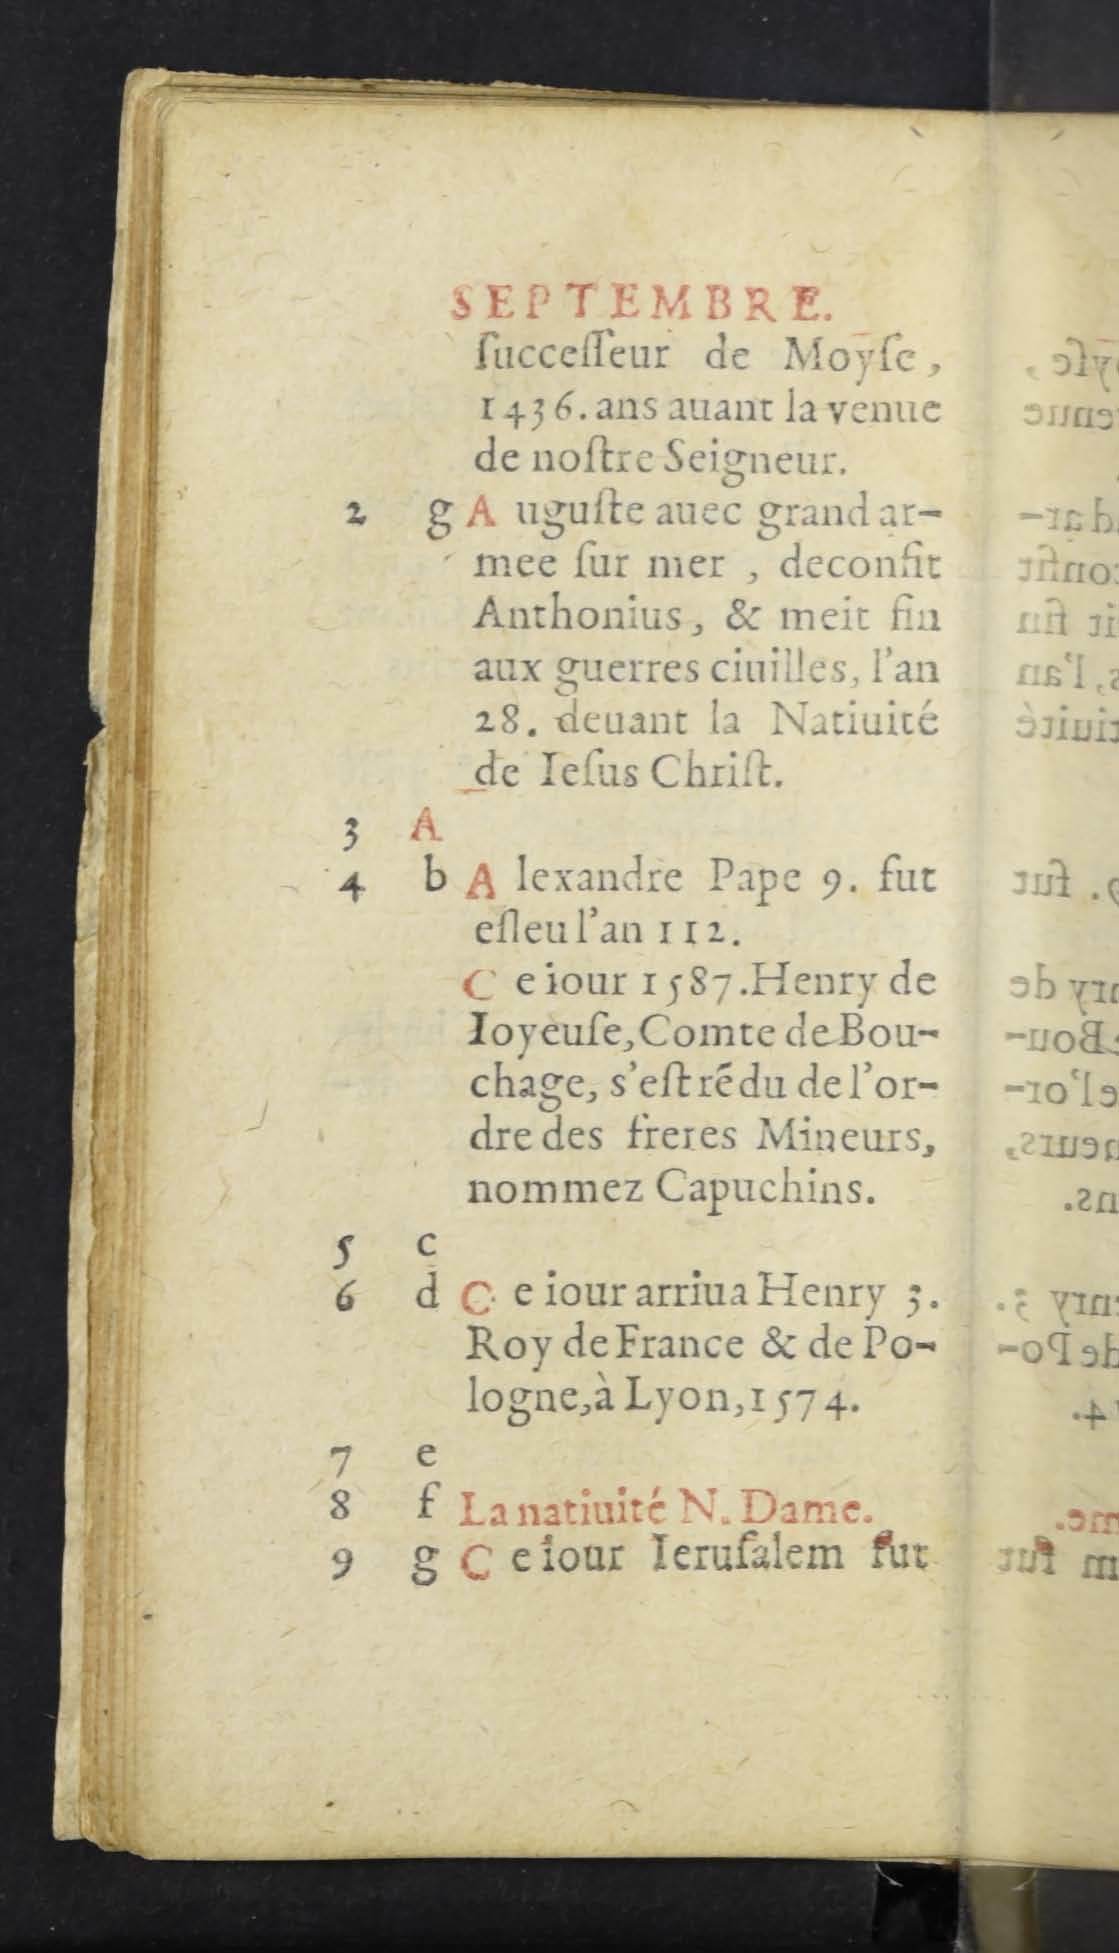 SEPTEMBRE.
ſucceſſeur de Moyſe,
1436. ans auant la venue
de noſtre Seigneur.
2 g A uguſte auec grand ar-
mee ſur mer , deconfit
Anthonius, & meit fin
aux guerres ciuilles, l'an
28. deuant la Natiuité
de Ieſus Chriſt.
3 A
4 b A lexandre Pape 9. fut
eſleu l'an 112.
C e iour 1587. Henry de
Ioyeuſe, Comte de Bou-
chage, s'eſt rẽdu de l'or-
dre des freres Mineurs,
nommez Capuchins.
5 c
6 d C e iour arriua Henry 3.
Roy de France & de Po-
logne, à Lyon, 1574.
7 e
8 f La natiuité N. Dame.
9 g C e iour Ieruſalem fut